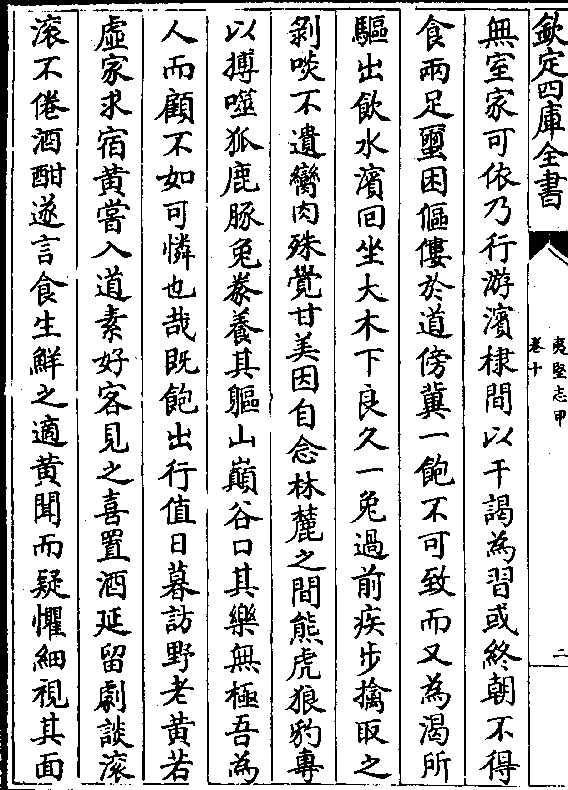 欽定四庫全書
夷堅志甲
卷十
二
無室家可依乃行游濱棣間以干謁為習或終朝不得
食兩足蠒困傴僂於道傍冀一飽不可致而又為渴所
驅出飲水濱回坐大木下良久一兔過前疾步擒取之
剝啖不遺臠肉殊覺甘美因自念林麓之間熊虎狼豹專
以搏噬狐鹿豚兔豢養其軀山巔谷口其樂無極吾為
人而顧不如可憐也哉既飽出行值日暮訪野老黃若
虛家求宿黃嘗入道素好客見之喜置酒延留劇談滾
滾不倦酒酣遂言食生鮮之適黃聞而疑懼細視其面